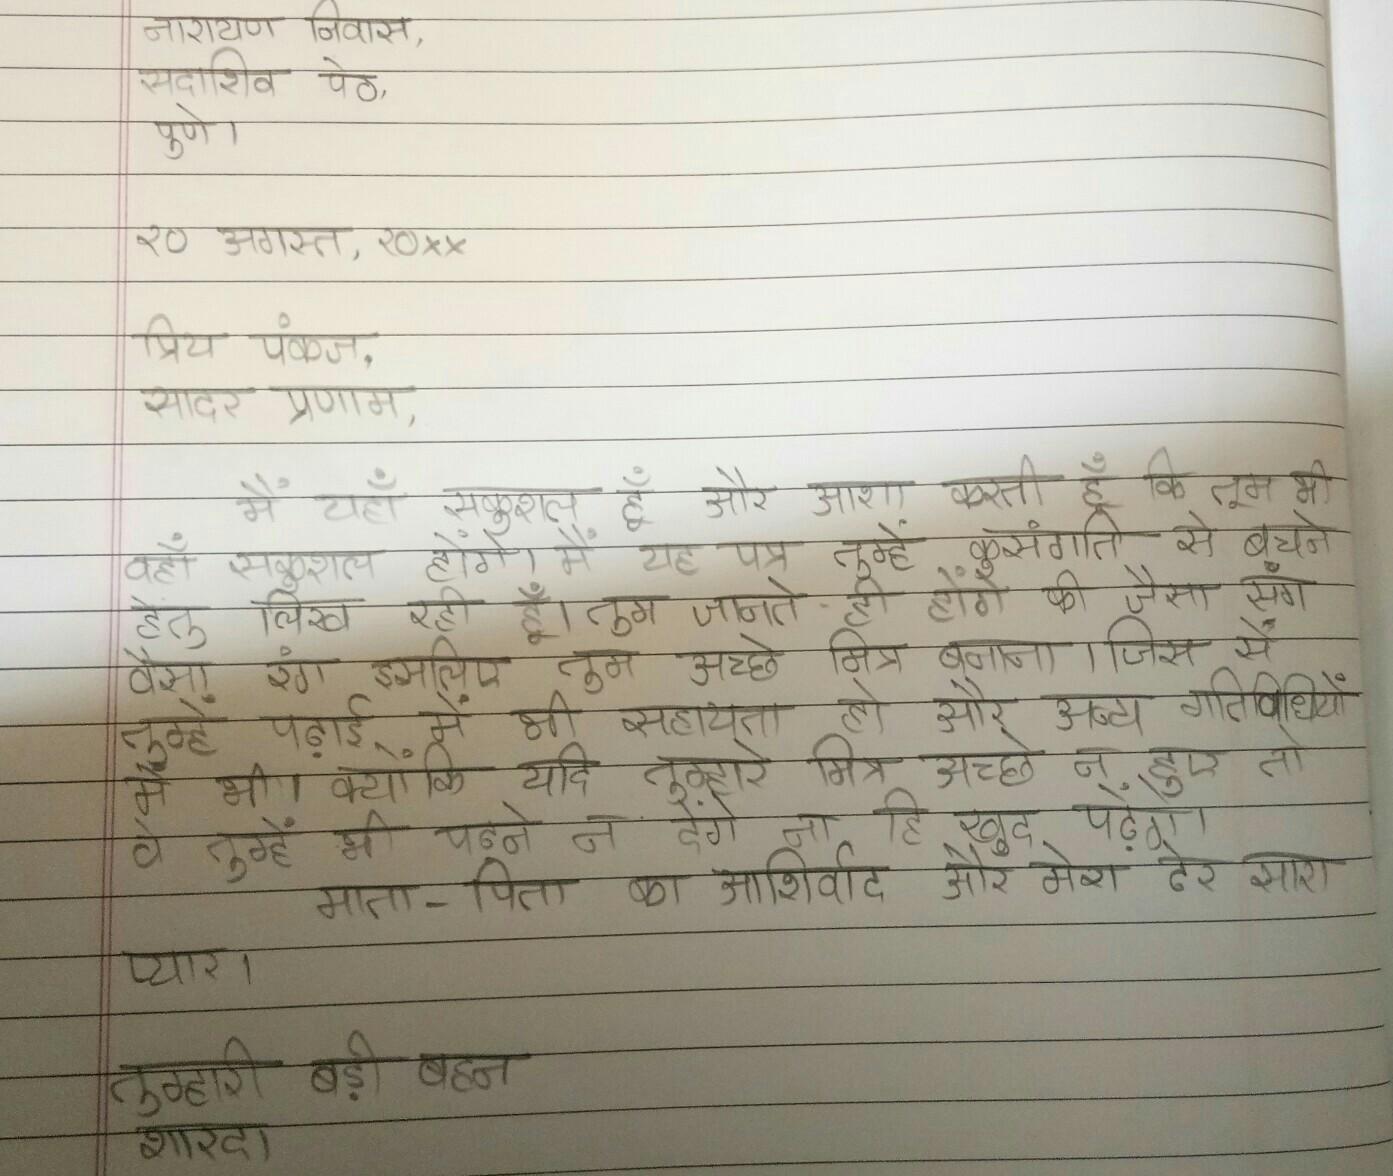 नारायण निवास,
सदाशिव पेठ,
पुणे।
२० अगस्त, २०××
प्रिय पंकज,
सादर प्रणाम,
मैं यहाँ सकुशल हूँ और आशा करती हूँ कि तूम भी
वहाँ सकुशल होंगे। मैं यह पत्र तुम्हें कुसंगति से बचने
हेतु लिख रही हूँ। तुम जानते ही होंगे की जैसा संग
वैसा रंग इसलिए तुम अच्छे मित्र बनाना। जिस से
तुम्हें पढ़ाई में भी सहायता हो और अन्य गतिविधियों
में भी। क्योंकि यदि तुम्हारे मित्र अच्छे न हुए तो
वे तुम्हें भी पढ़ने न देंगे ना हि खुद पढ़ेंगे।
माता - पिता का आशिर्वाद और मेरा ढेर सारा
प्यार।
तुम्हारी बड़ी बहन
शारदा